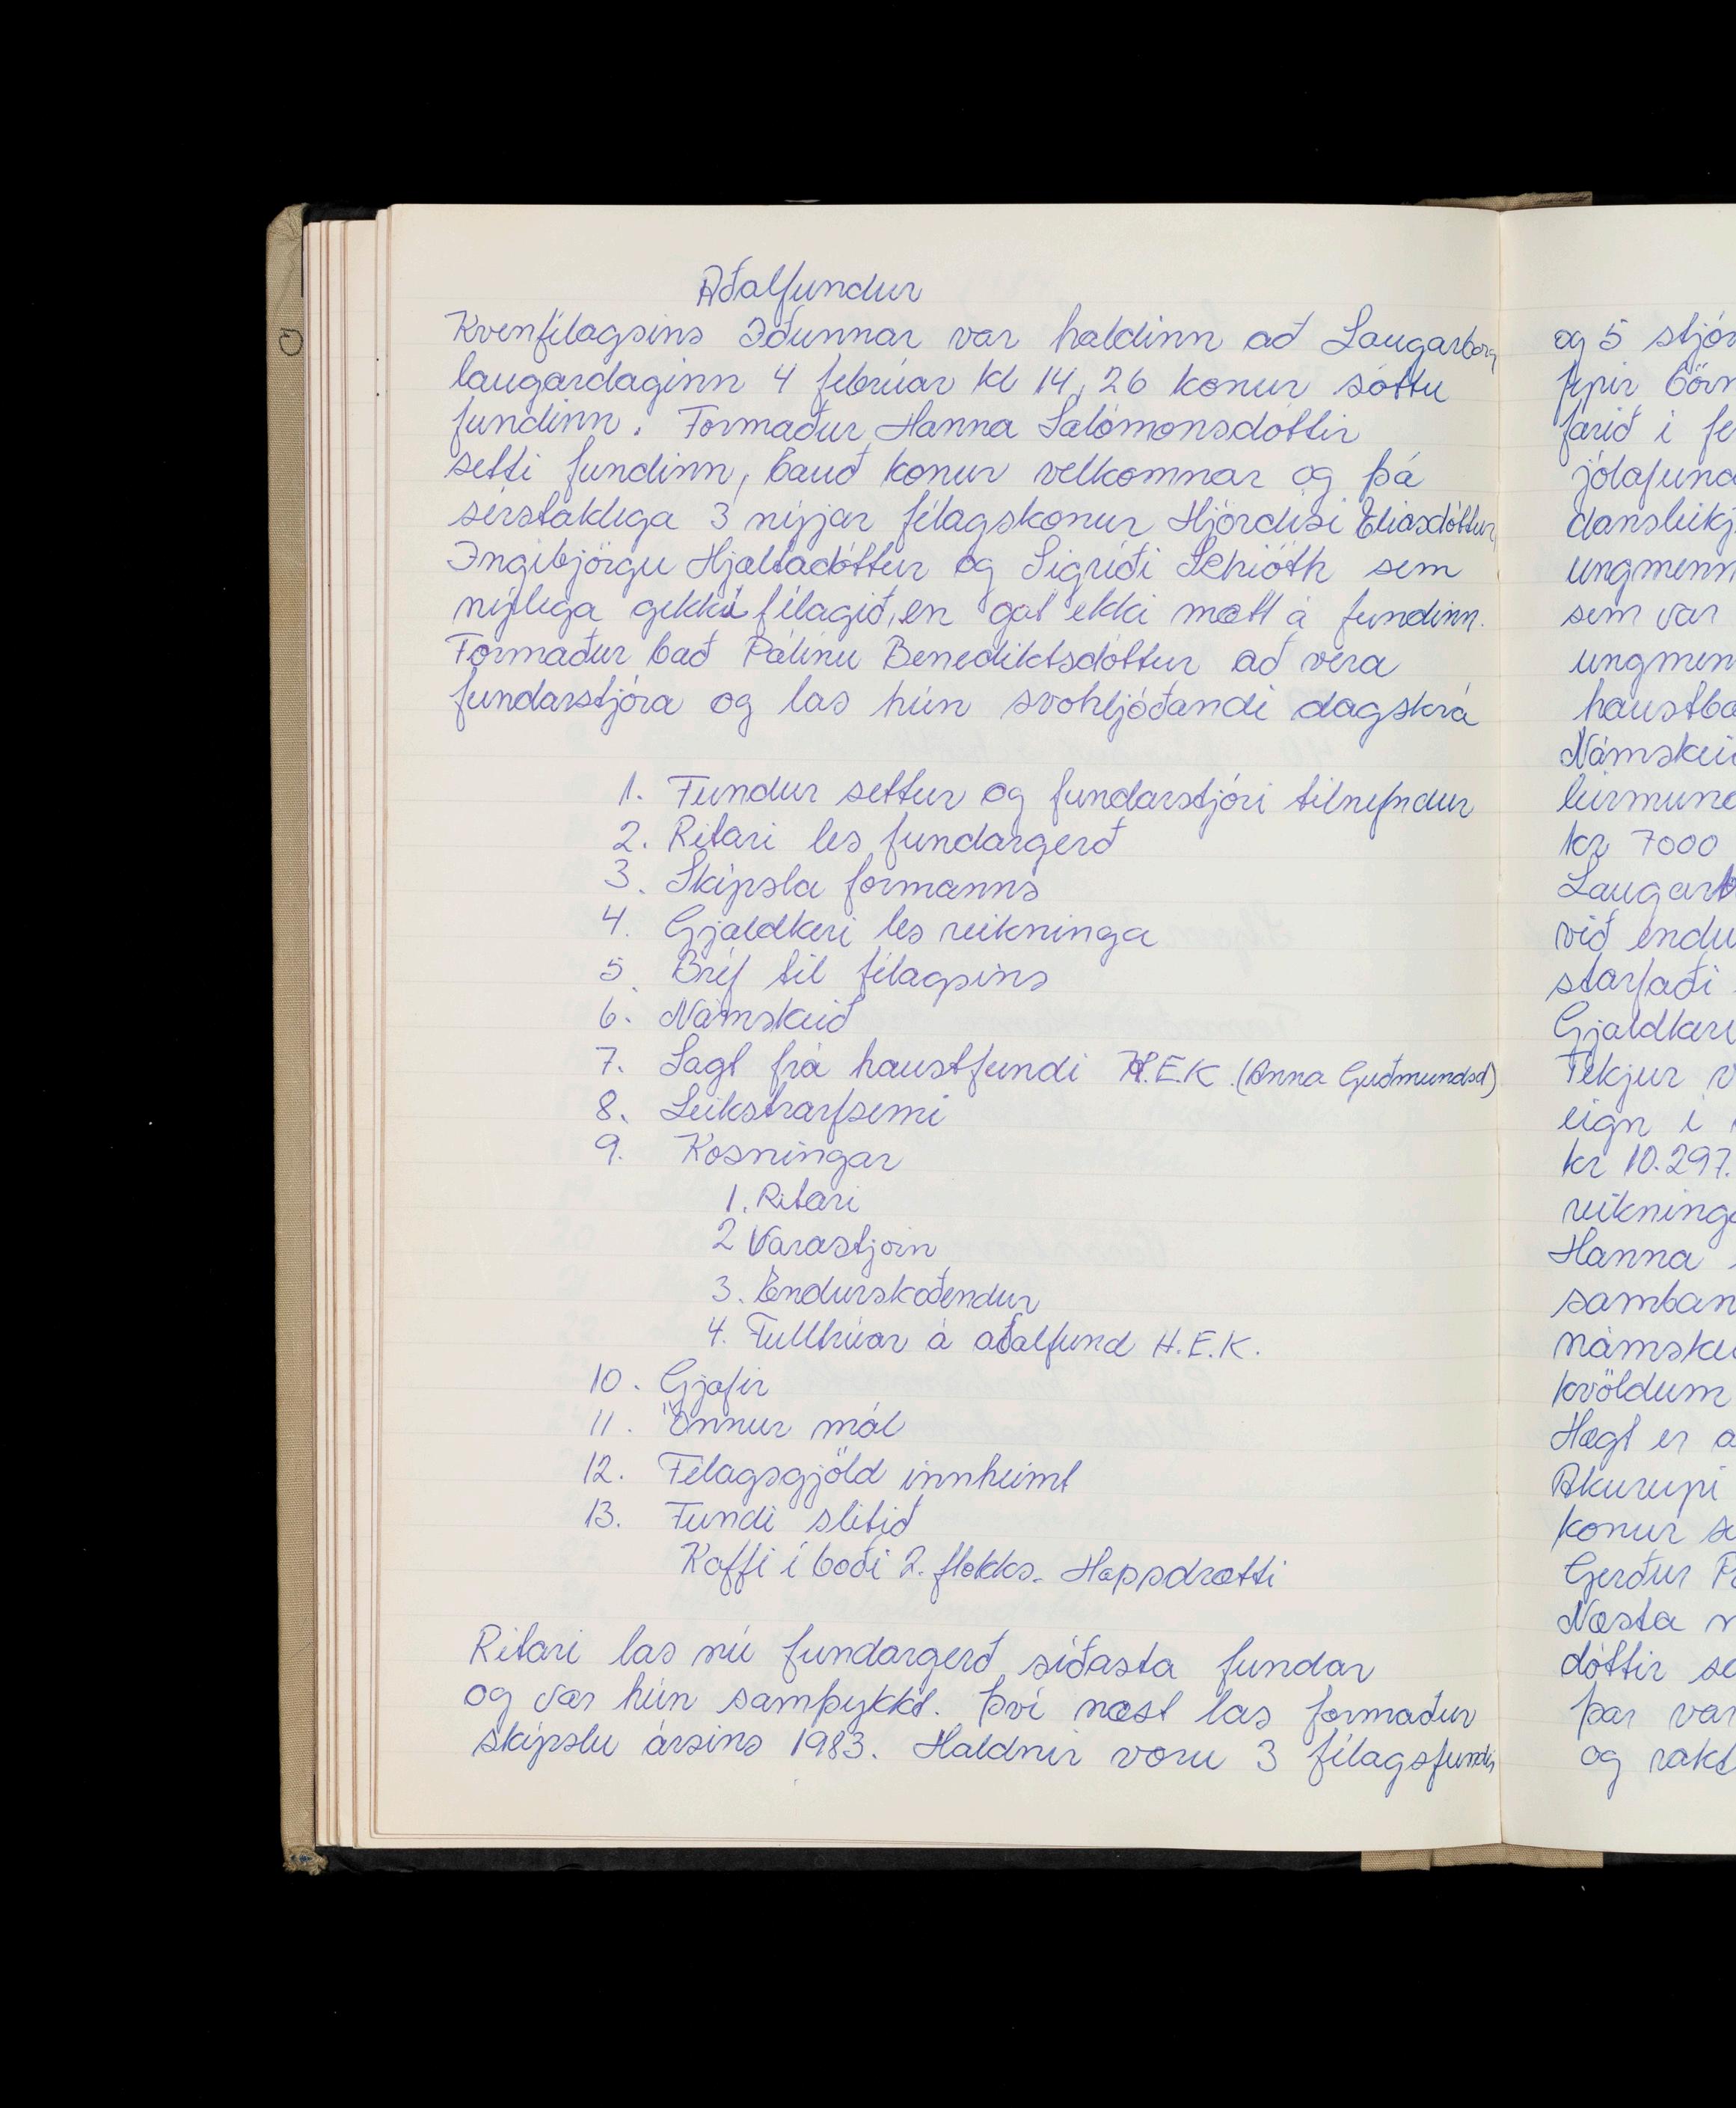 Aðalfundur
Kvenfélagsins Iðunnar var haldinn að Laugarborg
laugardaginn 4 febrúar kl 14, 26 konur sóttu
fundinn. Formaður Hanna Salómonsdóttir
setti fundinn, bauð konur velkomnar og þá
sérstaklega 3 nýjar félagskonur Hjördísi Elíasdóttur,
Ingibjörgu Hjaltadóttur og Sigríði Schiöth sem
nýlega gekk í félagið, en gat ekki mætt á fundinn.
Formaður bað Pálínu Benediktsdóttur að vera
fundarstjóra og las hún svohljóðandi dagskrá
1. Fundur settur og fundarstjóri tilnefndur
2. Ritari les fundargerð
3. Skýrsla formanns
4. Gjaldkeri les reikninga
5. Bréf til félagsins
6. Námskeið
7. Sagt frá haustfundi H.E.K. (Anna Guðmundsd)
8. Leikstrarfsemi
9. Kosningar
1. Ritari
2 Varastjórn
3. Endurskoðendur
4. Fulltrúar á aðalfund H.E.K.
10. Gjafir
11. Önnur mál
12. Félagsgjöld innheimt
13. Fundi slitið
Kaffi í boði 2. flokks. Happdrætti
Ritari las nú fundargerð síðasta fundar
og var hún samþykkt. Því næst las formaður
skýrslu ársins 1983. Haldnir voru 3 félagsfundir
og 5 stjór
fyrir börn
farið í fe
jólafund
dansleikj
ungmenn
sem var
ungmen
haustba
Námskei
leirmund
kr 7000
Laugarb
við endu
starfaði
Gjaldkeri
Tekjur v
eign í
kr 10.297.
reikninga
Hanna
samban
námske
kvöldum
Hægt er a
Akureyri
konur se
Gerður
Næsta
dóttir se
þar var
og rakt